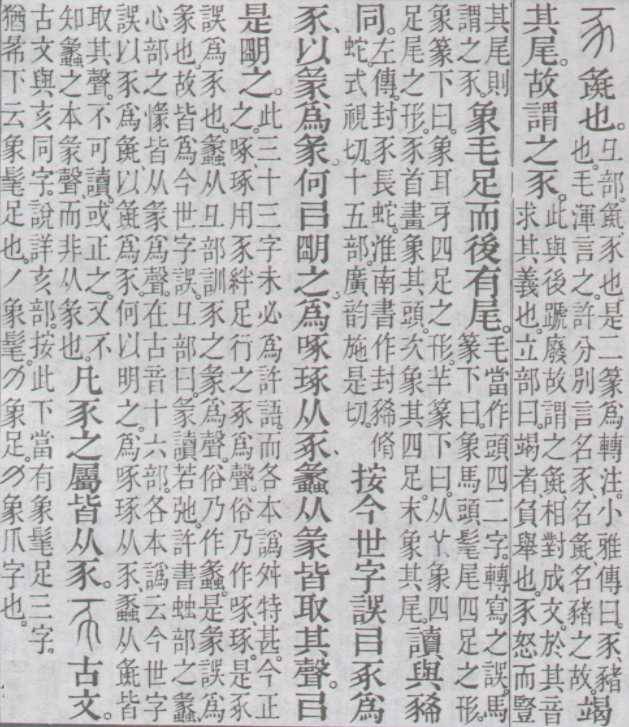 彘也。
彑部。彘、豕也。是二篆爲轉注。小雅傳曰。豕、豬
也。毛渾言之。許分別言名豕、名彘、名豬之故。
竭
其尾。故謂之豕。
此與後蹏廢故謂之彘相對成文。於其音
求其義也。立部曰。竭者、負舉也。豕怒而豎
其尾則
謂之豕。
象毛足而後有尾。
毛當作頭四二字。轉寫之誤。馬
篆下曰。象馬頭髦尾四足之形。
象篆下曰。象耳牙四足之形。羊篆下曰。从𦫳象四
足尾之形。豕首畫象其頭。次象其四足。末象其尾。
讀與豨
同。
左傳。封豕長蛇。淮南書作封豨脩
蛇。式視切。十五部。廣韵施是切。
按今世字誤㠯豕爲
豕、以彖爲彖何㠯朙之、爲啄琢从豕、蟸从彖皆取其聲。㠯
是朙之。
此三十三字未必爲許語。而各本譌舛特甚。今正
之。啄琢用豕絆足行之豕爲聲。俗乃作啄琢。是豕
誤爲豕也。蟸从彑部訓豕之彖爲聲。俗乃作蟸。是彖誤爲
彖也。故皆爲今世字誤。彑部曰。彖讀若弛。許書䖵部之蟸、
心部之㥟皆从彖爲聲。在古音十六部。各本譌云今世字
誤以豕爲彘以彘爲豕。何以明之。爲啄琢从豕、蟸从彘皆
取其聲。不可讀。或正之。又不
知蟸之本彖聲而非从彖也。
凡豕之屬皆从豕。
古文。
古文與亥同字。說詳亥部。按此下當有象髦足三字。
猶㣇下云象髦足也。丿象髦。象足。象爪字也。